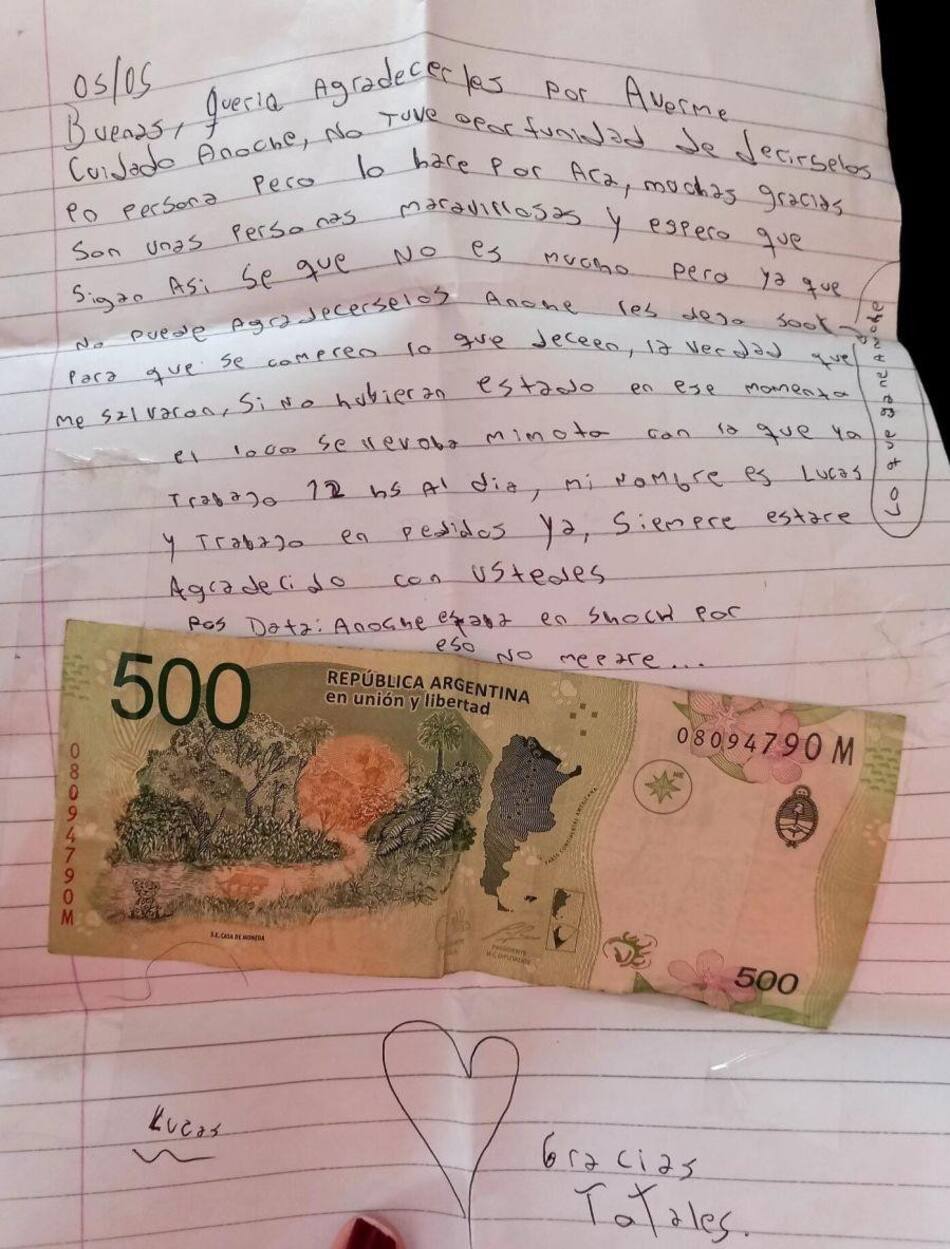 05/05
Buenas, queria Agradecerles por Averme
Cuidado Anoche, No Tuve oportunidad de decirselos
en persona Pero lo hare por Aca, muchas gracias
Son unas personas maravillosas y espero que
sigan Asi Se que No es mucho pero ya que
No puede Agradecerselos Anoche les dejo 500$
para que se compren lo que deceen, la verdad que
me salvaron, Si No hubieran estado en ese momento
el loco se llevaba mi moto con la que ya
Trabajo 12 hs Al dia, mi Nombre es Lucas
y Trabajo en pedidos ya, Siempre estare
Agradecido con ustedes
Pos Data: Anoche estaba en shock por
eso No me pare...
Lo que gane anoche
500
REPÚBLICA ARGENTINA
en unión y libertad
08094790 M
08094790M
PARTE CONTINENTAL AMERICANA
NE
S.E. CASA DE MONEDA
PRESIDENTE
H.C. DIPUTADOS
500
Lucas
Gracias
Totales.